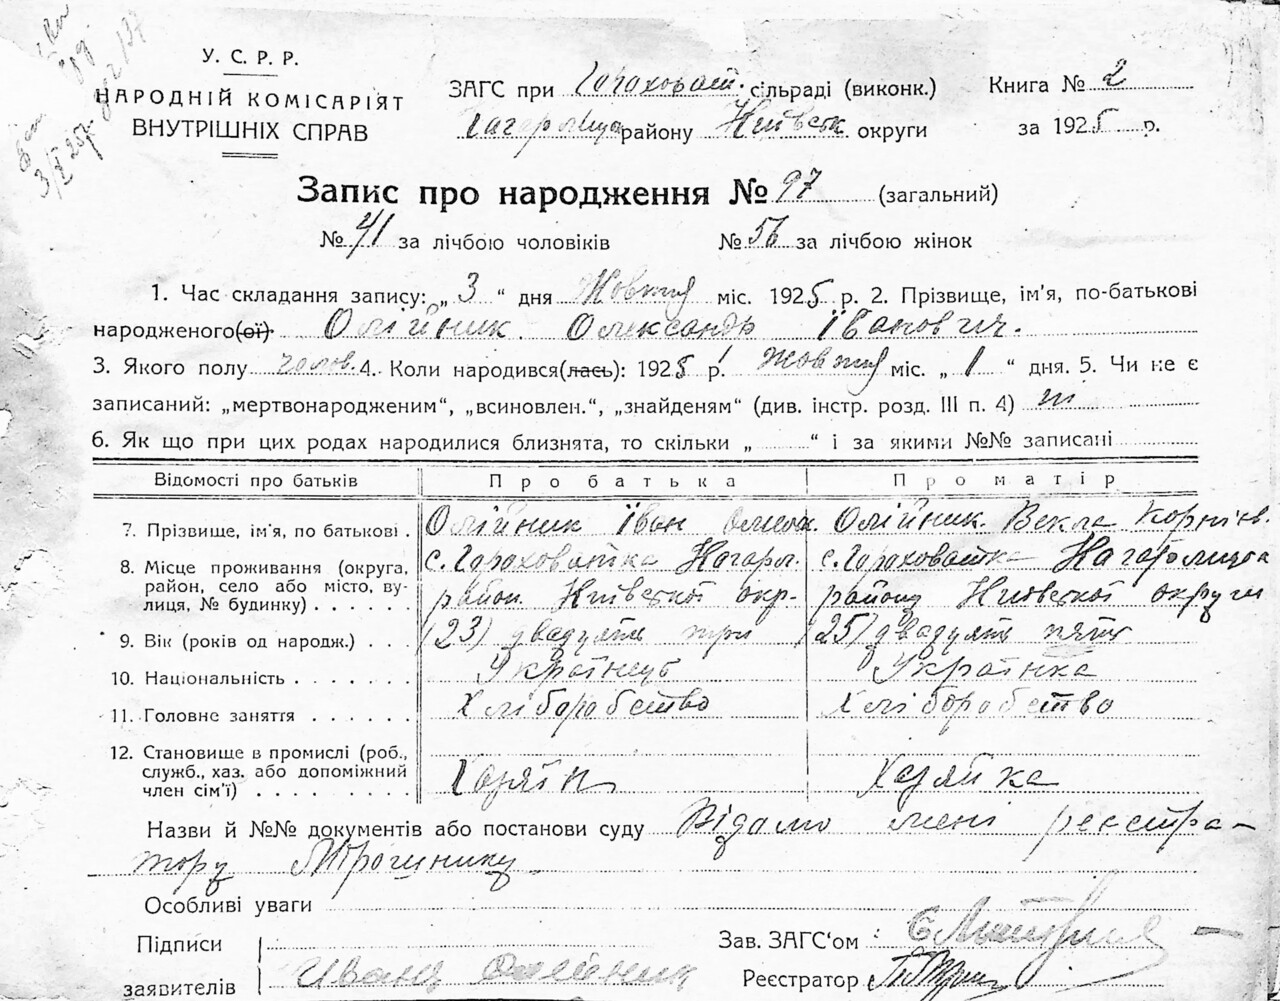 У. С. Р. Р.
НАРОДНІЙ КОМІСАРІЯТ
ВНУТРІШНІХ СПРАВ
ЗАГС при Гороховат. сільраді (виконк.)
Кагарлица району Київськ округи
Книга № 2
за 1925 р.
Запис про народження № 97 (загальний)
№ 41 за лічбою чоловіків № 56 за лічбою жінок
1. Час складання запису: „ 3 “ дня Жовтня міс. 1925 р. 2. Прізвище, ім'я, по-батькові
народженого(ої) Олійник Олександь Їванович.
3. Якого полу чолов. 4. Коли народився(лась): 1925 р. жовтня міс. „ 1 “ дня. 5. Чи не є
записаний: „мертвонародженим“, „всиновлен.“, „знайденям“ (див. інстр. розд. III п. 4) ні
6. Як що при цих родах народилися близнята, то скільки „ “ і за якими №№ записані
Відомості про батьків Про батька Про матір
7. Прізвище, ім'я, по батькові . Олійник Їван Омельк. Олійник. Векла Корнієв.
8. Місце проживання (округа, с. Гороховатка Кагарл. с. Гороховатка Кагарлицка
район, село або місто, ву-
лиця, № будинку) . . . . . . район. Київської окр- району Київської округи
9. Вік (років од народж.) . . (23) двадцять три (25) двадцять пять
10. Національність . . . . . . . Українець Українка
11. Головне заняття . . . . . . Хліборобство Хліборобство
12. Становище в промислі (роб.,
служб., хаз. або допоміжний
член сім'ї) . . . . . . . . . Хазяїн Хазяйка
Назви й №№ документів або постанови суду Відомо мені реєстра-
тору Трощинку
Особливі уваги
Підписи
заявителів Иванц Олійник
Зав. ЗАГС'ом :
Реєстратор